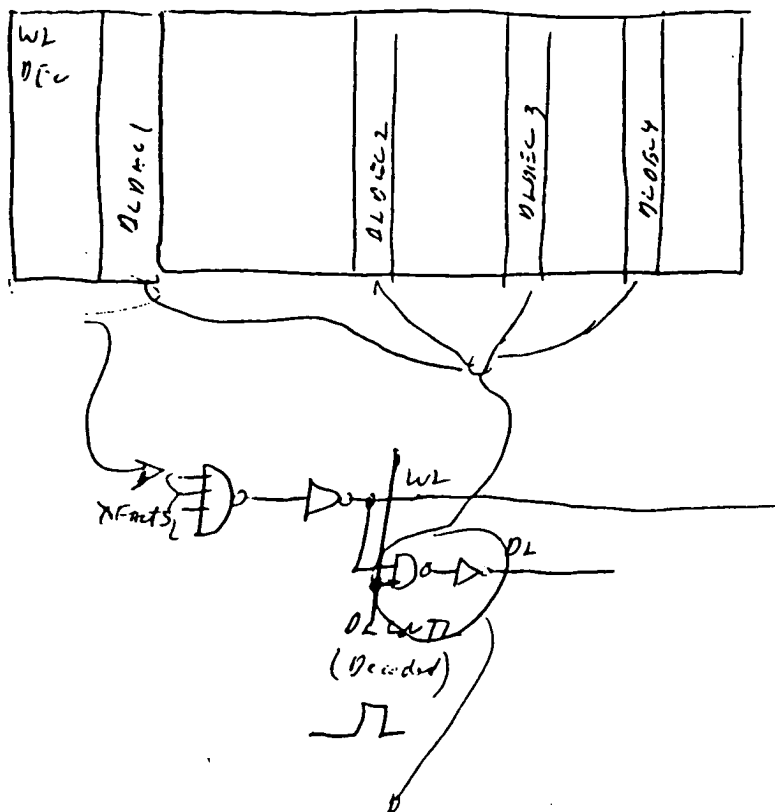 WL
DEC
DLDEC1
DLDEC2
DLDEC3
DLDEC4
WL
DL
DL
(Decoded)